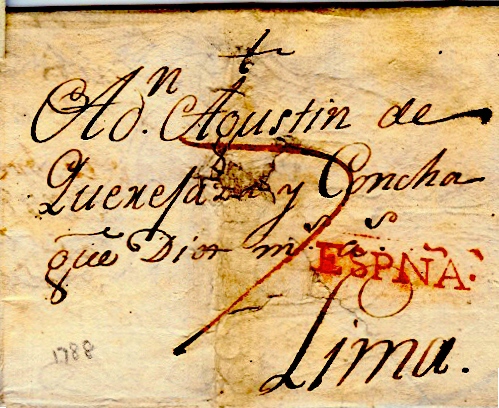 †
A D.ⁿ Agustin de
Querejazu y Concha
que Dios m.ˢ a.ˢ
ESPÑA.
Lima.
1788